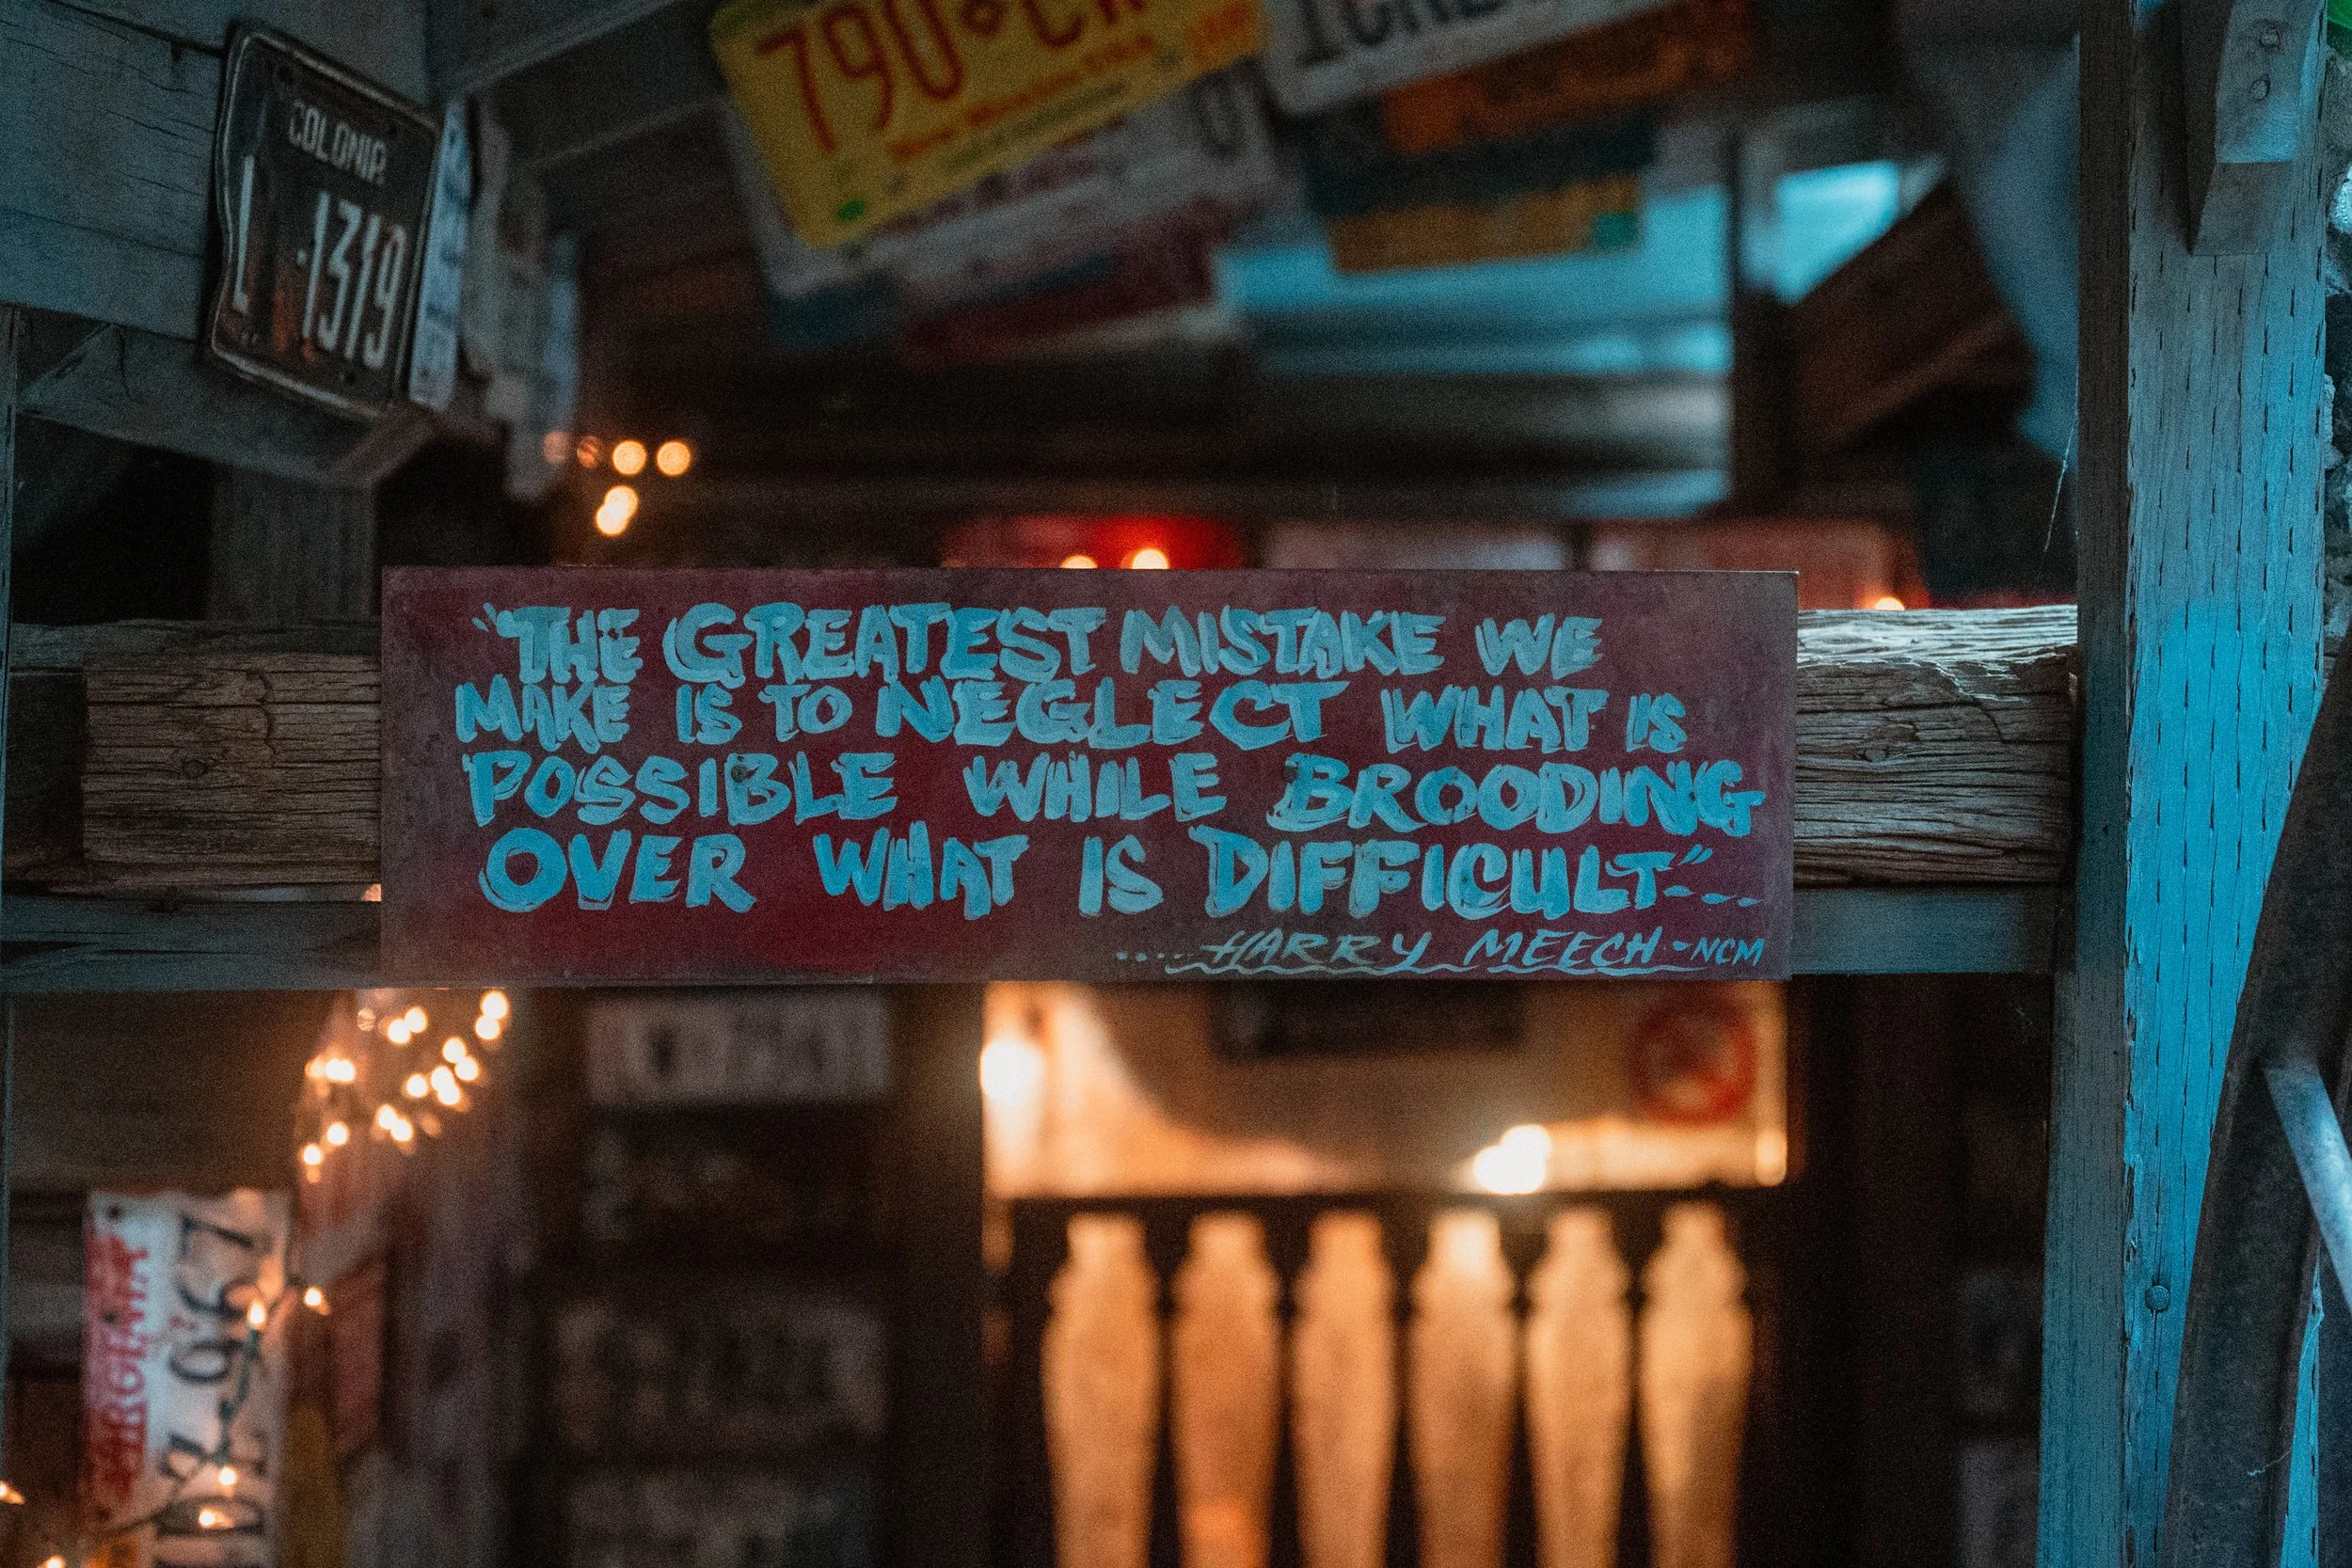 790
COLONIA
L -1319
"THE GREATEST MISTAKE WE
MAKE IS TO NEGLECT WHAT IS
POSSIBLE WHILE BROODING
OVER WHAT IS DIFFICULT"---
.....HARRY MEECH-NCM
VIRGINIA